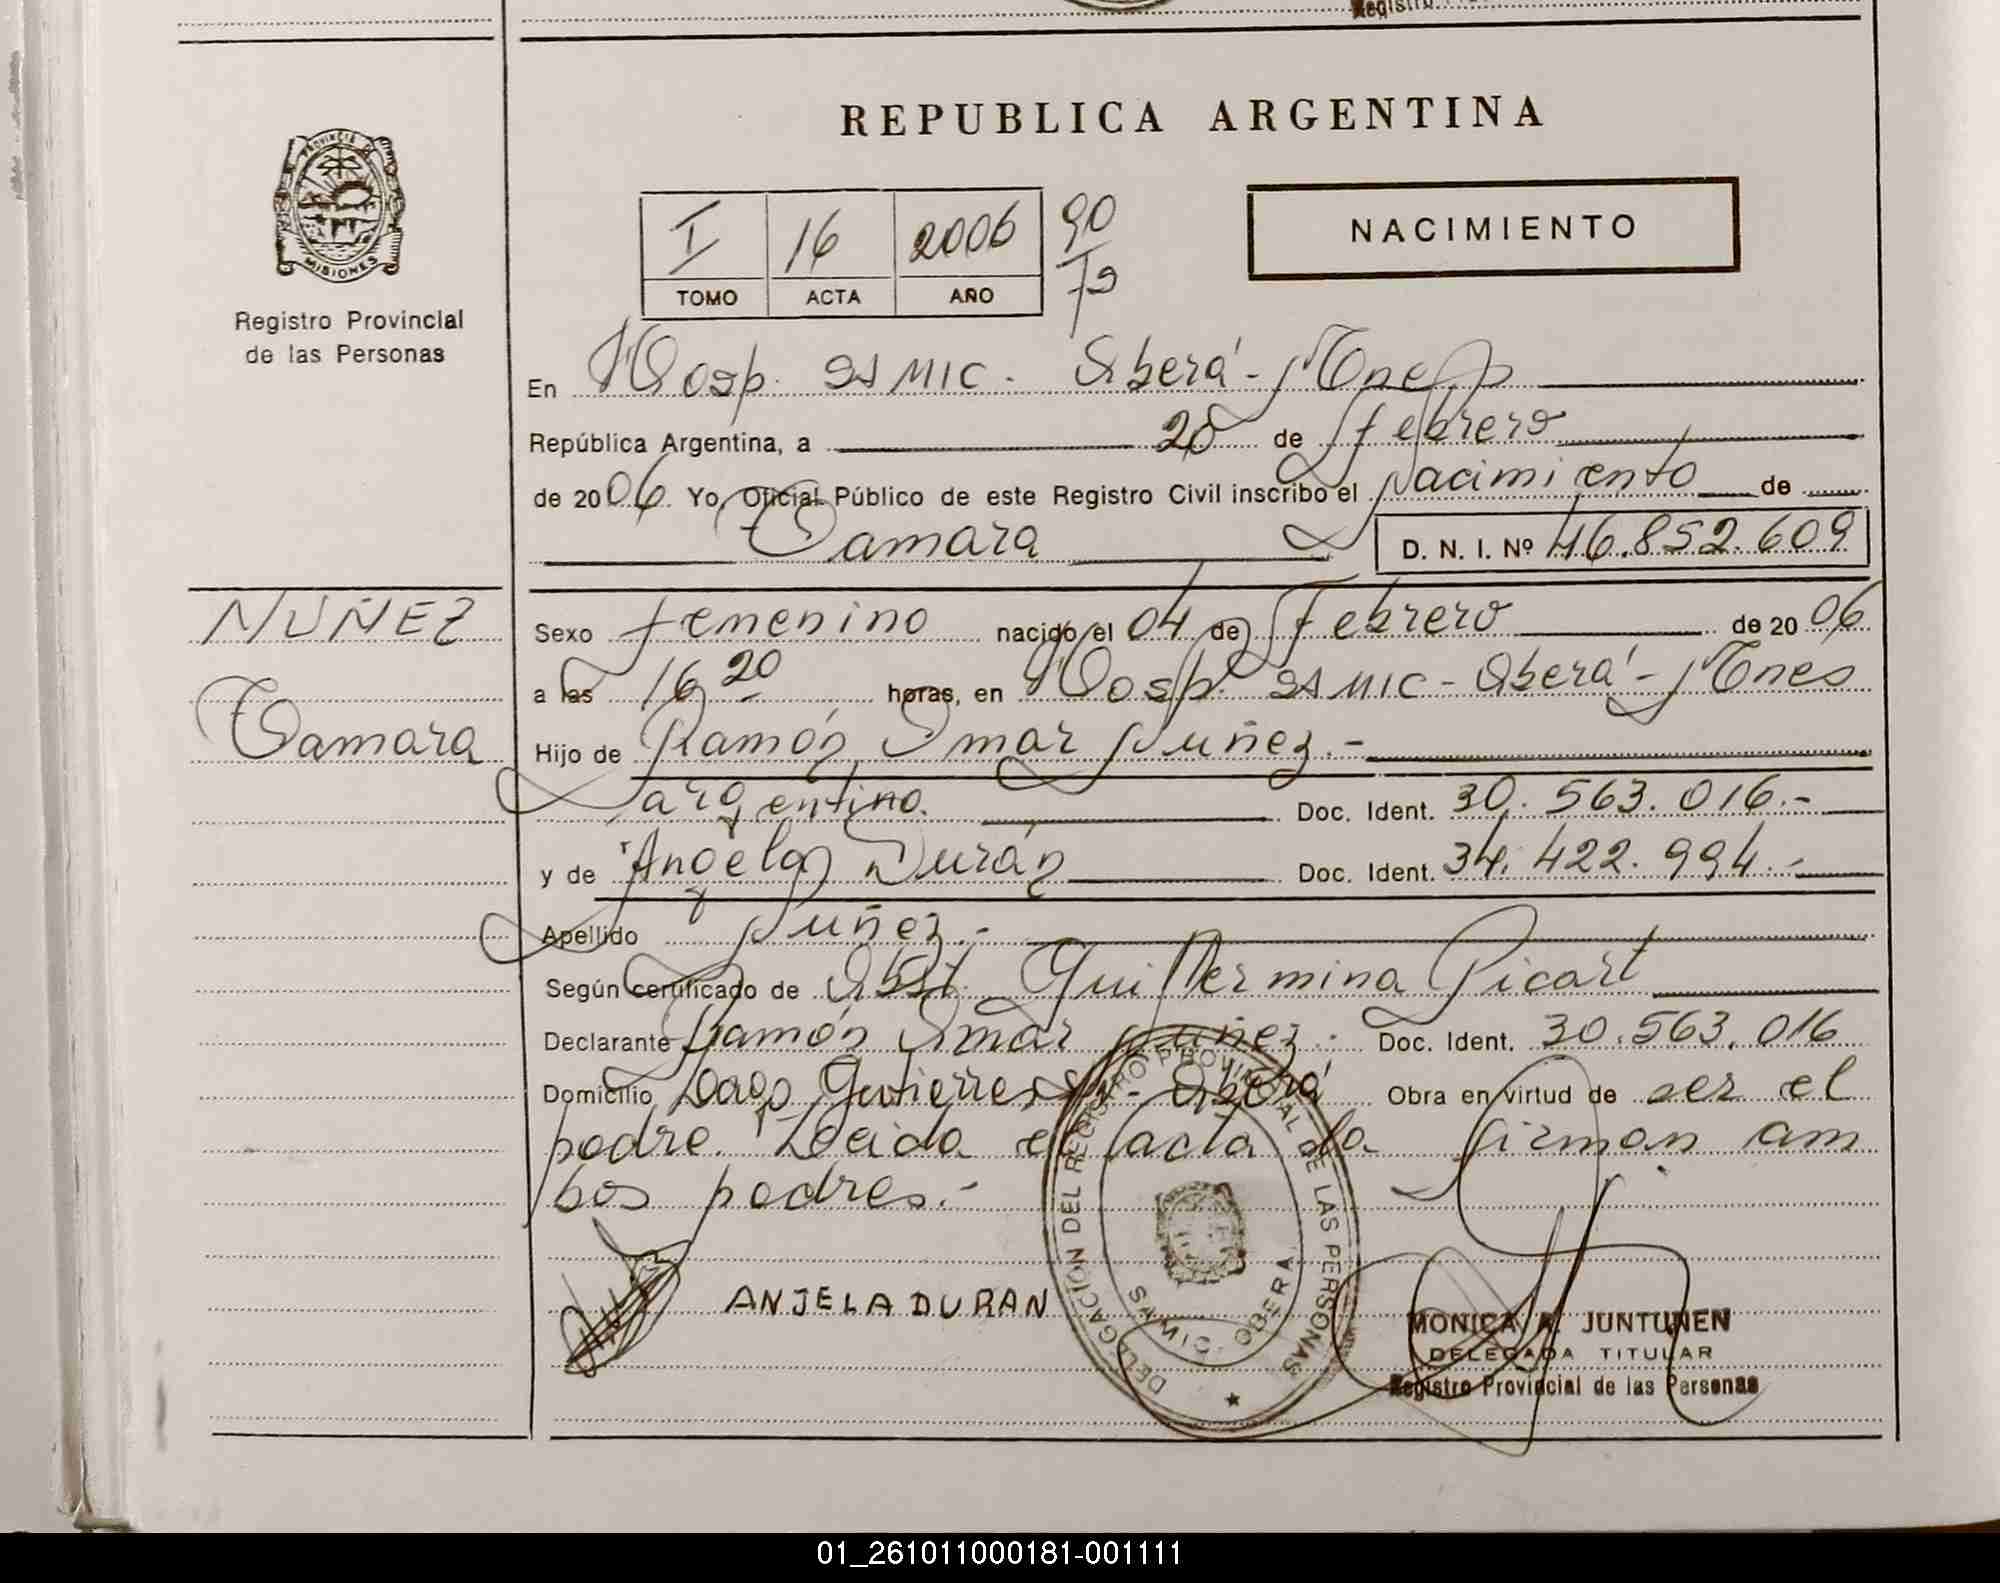 REPUBLICA ARGENTINA
PROVINCIA DE
MISIONES
Registro Provincial
de las Personas
I 16 2006 90
TOMO ACTA AÑO
NACIMIENTO
En Hosp. SAMIC. Oberá - Mnes
República Argentina, a 20 de febrero
de 2006 Yo, Oficial Público de este Registro Civil inscribo el Nacimiento de
Tamara D. N. I. Nº 46.852.609
NUÑEZ
Tamara
Sexo femenino nacido el 04 de Febrero de 2006
a las 16 20 horas, en Hosp. SAMIC - Oberá - Mnes
Hijo de Ramón Omar Nuñez.-
argentino. Doc. Ident. 30.563.016.-
y de Angela Durán Doc. Ident. 34.422.994.-
Apellido Nuñez.-
Según certificado de Obst. Guillermina Picart
Declarante Ramón Omar Nuñez. Doc. Ident. 30.563.016
Domicilio Lago Gutierrez - Oberá Obra en virtud de ser el
padre. Leida el acta la firman am
bos padres.-
ANJELA DURAN
DELEGACION DEL REGISTRO PROVINCIAL DE LAS PERSONAS
SAMIC - OBERA
MONICA A. JUNTUNEN
DELEGADA TITULAR
Registro Provincial de las Personas
01_261011000181-001111